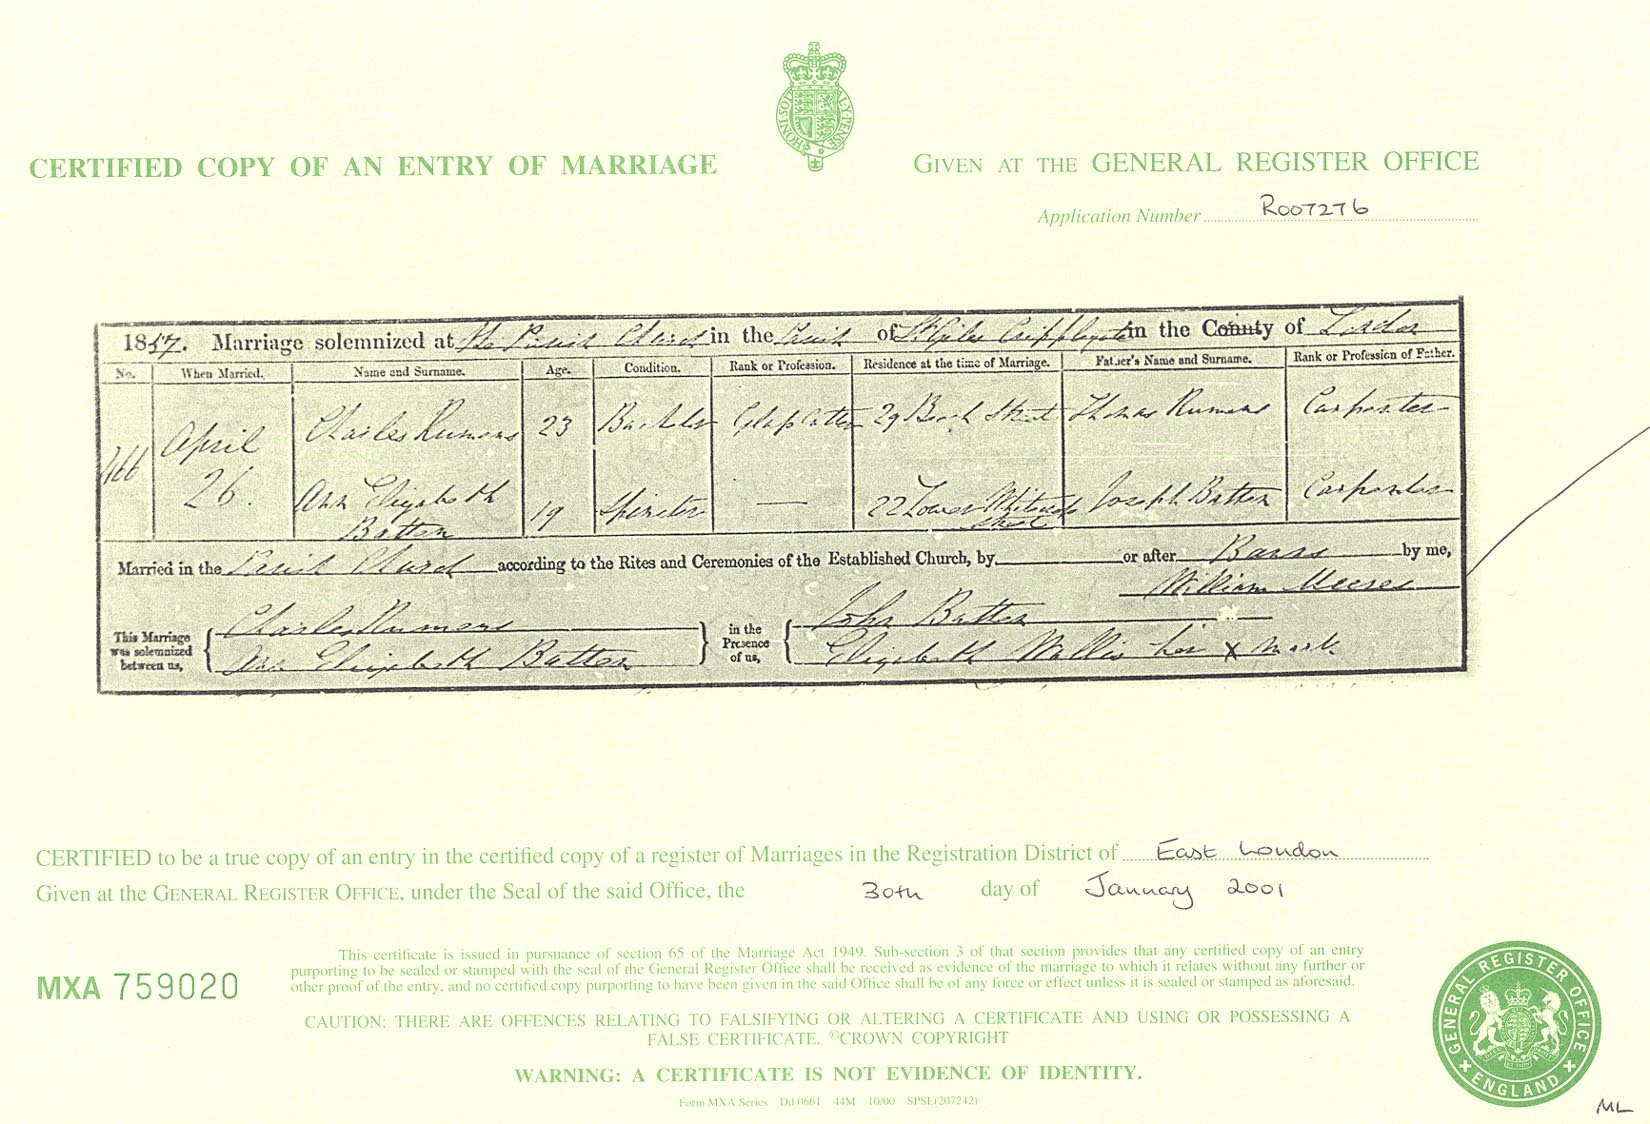 HONI·SOIT·QUI·MAL·Y·PENSE
CERTIFIED COPY OF AN ENTRY OF MARRIAGE
GIVEN AT THE GENERAL REGISTER OFFICE
Application Number R007276
1857. Marriage solemnized at the Parish Church in the Parish of St Giles Cripplegate in the County of London
No. When Married. Name and Surname. Age. Condition. Rank or Profession. Residence at the time of Marriage. Father's Name and Surname. Rank or Profession of Father.
466 April 26. Charles Rumens 23 Bachelor Glass Cutter 29 Beech Street Thomas Rumens Carpenter
Ann Elizabeth Batten 19 Spinster — 22 Lower Whitecross Street Joseph Batten Carpenter
Married in the Parish Church according to the Rites and Ceremonies of the Established Church, by or after Banns by me,
William Meeres
This Marriage was solemnized between us, Charles Rumens in the Presence of us, John Batten
Ann Elizabeth Batten Elizabeth Wallis her X mark
CERTIFIED to be a true copy of an entry in the certified copy of a register of Marriages in the Registration District of East London
Given at the GENERAL REGISTER OFFICE, under the Seal of the said Office, the 30th day of January 2001
This certificate is issued in pursuance of section 65 of the Marriage Act 1949. Sub-section 3 of that section provides that any certified copy of an entry
purporting to be sealed or stamped with the seal of the General Register Office shall be received as evidence of the marriage to which it relates without any further or
other proof of the entry, and no certified copy purporting to have been given in the said Office shall be of any force or effect unless it is sealed or stamped as aforesaid.
MXA 759020
CAUTION: THERE ARE OFFENCES RELATING TO FALSIFYING OR ALTERING A CERTIFICATE AND USING OR POSSESSING A
FALSE CERTIFICATE. ©CROWN COPYRIGHT
WARNING: A CERTIFICATE IS NOT EVIDENCE OF IDENTITY.
Form MXA Series Dd 0661 44M 10/00 SPSL(207242)
GENERAL REGISTER OFFICE
ENGLAND
ML